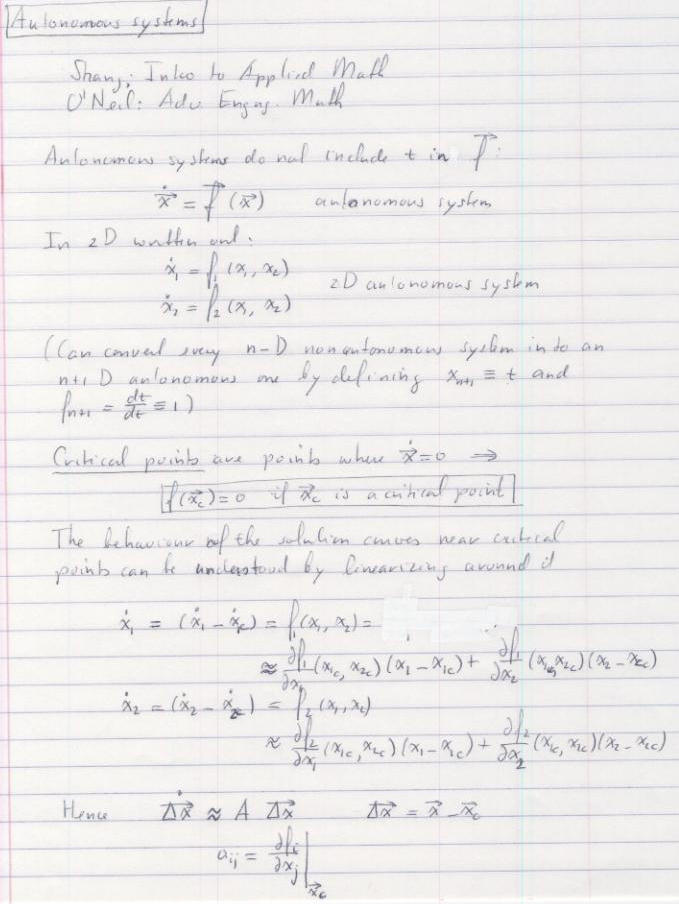 Autonomous systems
Strang: Intro to Applied Math
O'Neil: Adv. Engng. Math
Autonomous systems do not include t in f⃗:
ẋ⃗ = f⃗(x⃗) autonomous system
In 2D written out:
ẋ₁ = f₁(x₁, x₂)
2D autonomous system
ẋ₂ = f₂(x₁, x₂)
(Can convert every n-D nonautonomous system into an
n+1 D autonomous one by defining xₙ₊₁ ≡ t and
fₙ₊₁ = dt/dt ≡ 1)
Critical points are points where ẋ⃗=0 ⇒
f(x⃗c)=0 if x⃗c is a critical point
The behaviour of the solution curves near critical
points can be understood by linearizing around it
ẋ₁ = (ẋ₁ - ẋc) = f₁(x₁, x₂) =
≈ ∂f₁/∂x₁ (x₁c, x₂c)(x₁ - x₁c) + ∂f₁/∂x₂ (x₁c, x₂c)(x₂ - x₂c)
ẋ₂ = (ẋ₂ - ẋ₂c) = f₂(x₁, x₂)
≈ ∂f₂/∂x₁ (x₁c, x₂c)(x₁ - x₁c) + ∂f₂/∂x₂ (x₁c, x₂c)(x₂ - x₂c)
Hence Δẋ⃗ ≈ A Δx⃗ Δx⃗ = x⃗ - x⃗c
aᵢⱼ = ∂fᵢ/∂xⱼ |x⃗c